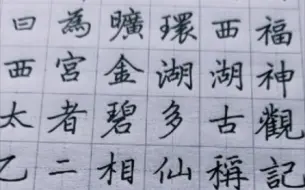 福神觀記
西湖古稱
環湖多仙
曠金碧相
為宮者二
曰西太乙